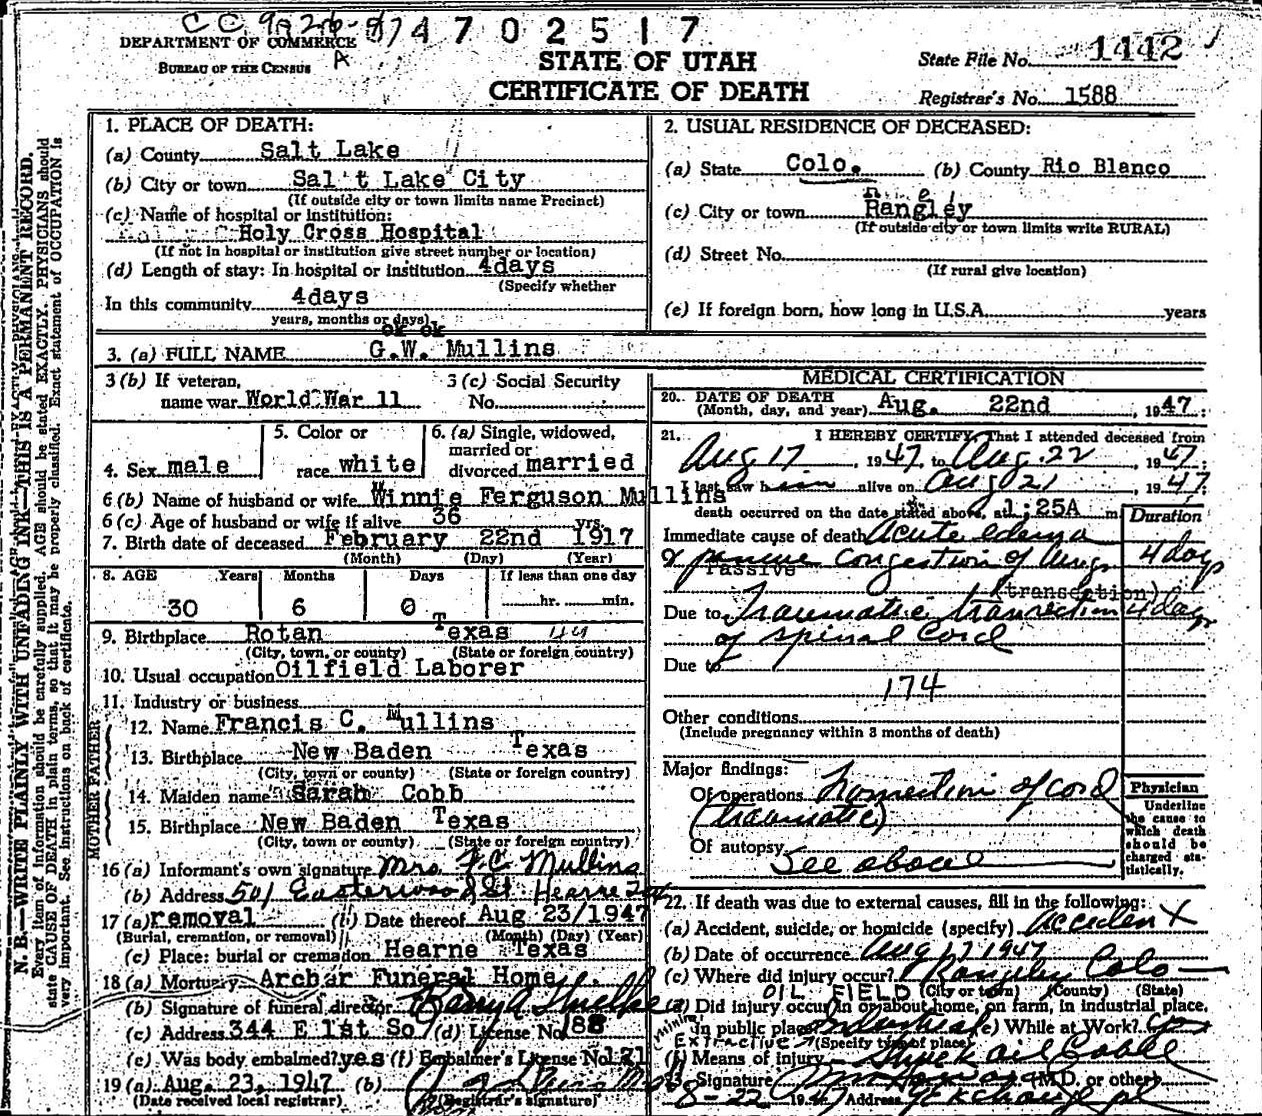 C C 9a26-87 4 7 0 2 5 1 7
DEPARTMENT OF COMMERCE
BUREAU OF THE CENSUS
A
STATE OF UTAH
CERTIFICATE OF DEATH
State File No. 1442
Registrar's No. 1588
N. B.—WRITE PLAINLY WITH UNFADING INK—THIS IS A PERMANENT RECORD.
Every item of information should be carefully supplied. AGE should be stated EXACTLY. PHYSICIANS should
state CAUSE OF DEATH in plain terms, so that it may be properly classified. Exact statement of OCCUPATION is
very important. See instructions on back of certificate.
1. PLACE OF DEATH:
(a) County Salt Lake
(b) City or town Sal't Lake City
(If outside city or town limits name Precinct)
(c) Name of hospital or institution:
Holy Cross Hospital
(If not in hospital or institution give street number or location)
(d) Length of stay: In hospital or institution 4days
(Specify whether
In this community 4days
years, months or days)
2. USUAL RESIDENCE OF DECEASED:
(a) State Colo. (b) County Rio Blanco
(c) City or town Rangley
(If outside city or town limits write RURAL)
(d) Street No.
(If rural give location)
(e) If foreign born, how long in U.S.A. years
ok ok
3. (a) FULL NAME G.W. Mullins
3 (b) If veteran,
name war World War 11
3 (c) Social Security
No.
4. Sex male
5. Color or
race white
6. (a) Single, widowed,
married or
divorced married
6 (b) Name of husband or wife Winnie Ferguson Mullins
6 (c) Age of husband or wife if alive 36 yrs.
7. Birth date of deceased February 22nd 1917
(Month) (Day) (Year)
8. AGE Years Months Days If less than one day
30 6 0 hr. min.
9. Birthplace Rotan Texas 44
(City, town, or county) (State or foreign country)
10. Usual occupation Oilfield Laborer
11. Industry or business
FATHER
12. Name Francis C. Mullins
13. Birthplace New Baden Texas
(City, town or county) (State or foreign country)
MOTHER
14. Maiden name Sarah Cobb
15. Birthplace New Baden Texas
(City, town or county) (State or foreign country)
16 (a) Informant's own signature Mrs. F.C. Mullins
(b) Address 501 Easterwood St Hearne Tex
17 (a) removal (b) Date thereof Aug 23/1947
(Burial, cremation, or removal) (Month) (Day) (Year)
(c) Place: burial or cremation Hearne Texas
18 (a) Mortuary Archer Funeral Home
(b) Signature of funeral director
(c) Address 344 E 1st So (d) License No. 188
(e) Was body embalmed? yes (f) Embalmer's License No. 121
19 (a) Aug. 23, 1947 (b)
(Date received local registrar) (Registrar's signature)
MEDICAL CERTIFICATION
20. DATE OF DEATH
(Month, day, and year) Aug. 22nd , 1947
21. I HEREBY CERTIFY, That I attended deceased from
Aug 17 , 1947, to Aug. 22 , 1947
I last saw him alive on Aug 21 , 1947
death occurred on the date stated above, at 1:25A m
Duration
Immediate cause of death Acute edema
& passive congestion of lungs 4 days
passive
(transection)
Due to Traumatic transection 4 days
of spinal cord
Due to
174
Other conditions
(Include pregnancy within 3 months of death)
Major findings:
Of operations Transection of cord
(traumatic)
Of autopsy
See above
Physician
Underline
the cause to
which death
should be
charged sta-
tistically.
22. If death was due to external causes, fill in the following:
(a) Accident, suicide, or homicide (specify) Accident X
(b) Date of occurrence Aug 17 1947
(c) Where did injury occur? Rangley Colo
(City or town) (County) (State)
OIL FIELD
(d) Did injury occur in or about home, on farm, in industrial place,
in public place? Industrial (e) While at Work? yes
EXTRACTIVE (Specify type of place)
(f) Means of injury Struck oil cable
23. Signature (M.D. or other)
8-22 1947 Address Exchange pl